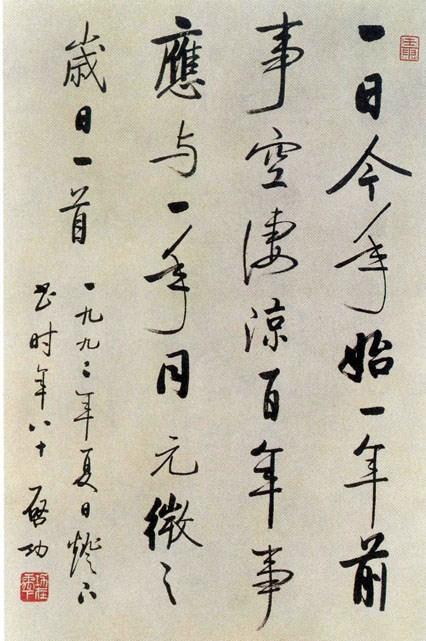 一日今年始一年前
事空淒涼百年事
應与一年同元微之
歲日一首
一九九二年夏日燈下
书时年八十 启功